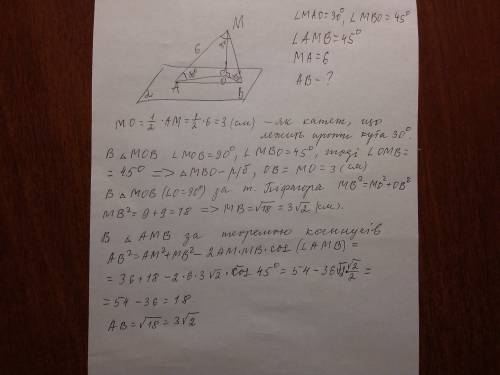 ∠MAO=30°, ∠MBO=45°
∠AMB=45°
MA=6
AB-?
M
6
30°
A
O
B
α
MO=1/2·AM=1/2·6=3(см) – як катет, що
лежить проти кута 30°
В △MOB ∠MOB=90°, ∠MBO=45°, тоді ∠OMB=
=45° => △MBO-р/б, OB=MO=3(см)
В △MOB (∠O=90°) за т. Піфагора MB²=MO²+OB²
MB²=9+9=18 => MB=√18=3√2 (см).
В △AMB за теоремою косинусів
AB²=AM²+MB²-2AM·MB·cos(∠AMB)=
=36+18-2·6·3√2·cos 45°=54-36√2·√2/2=
=54-36=18
AB=√18=3√2